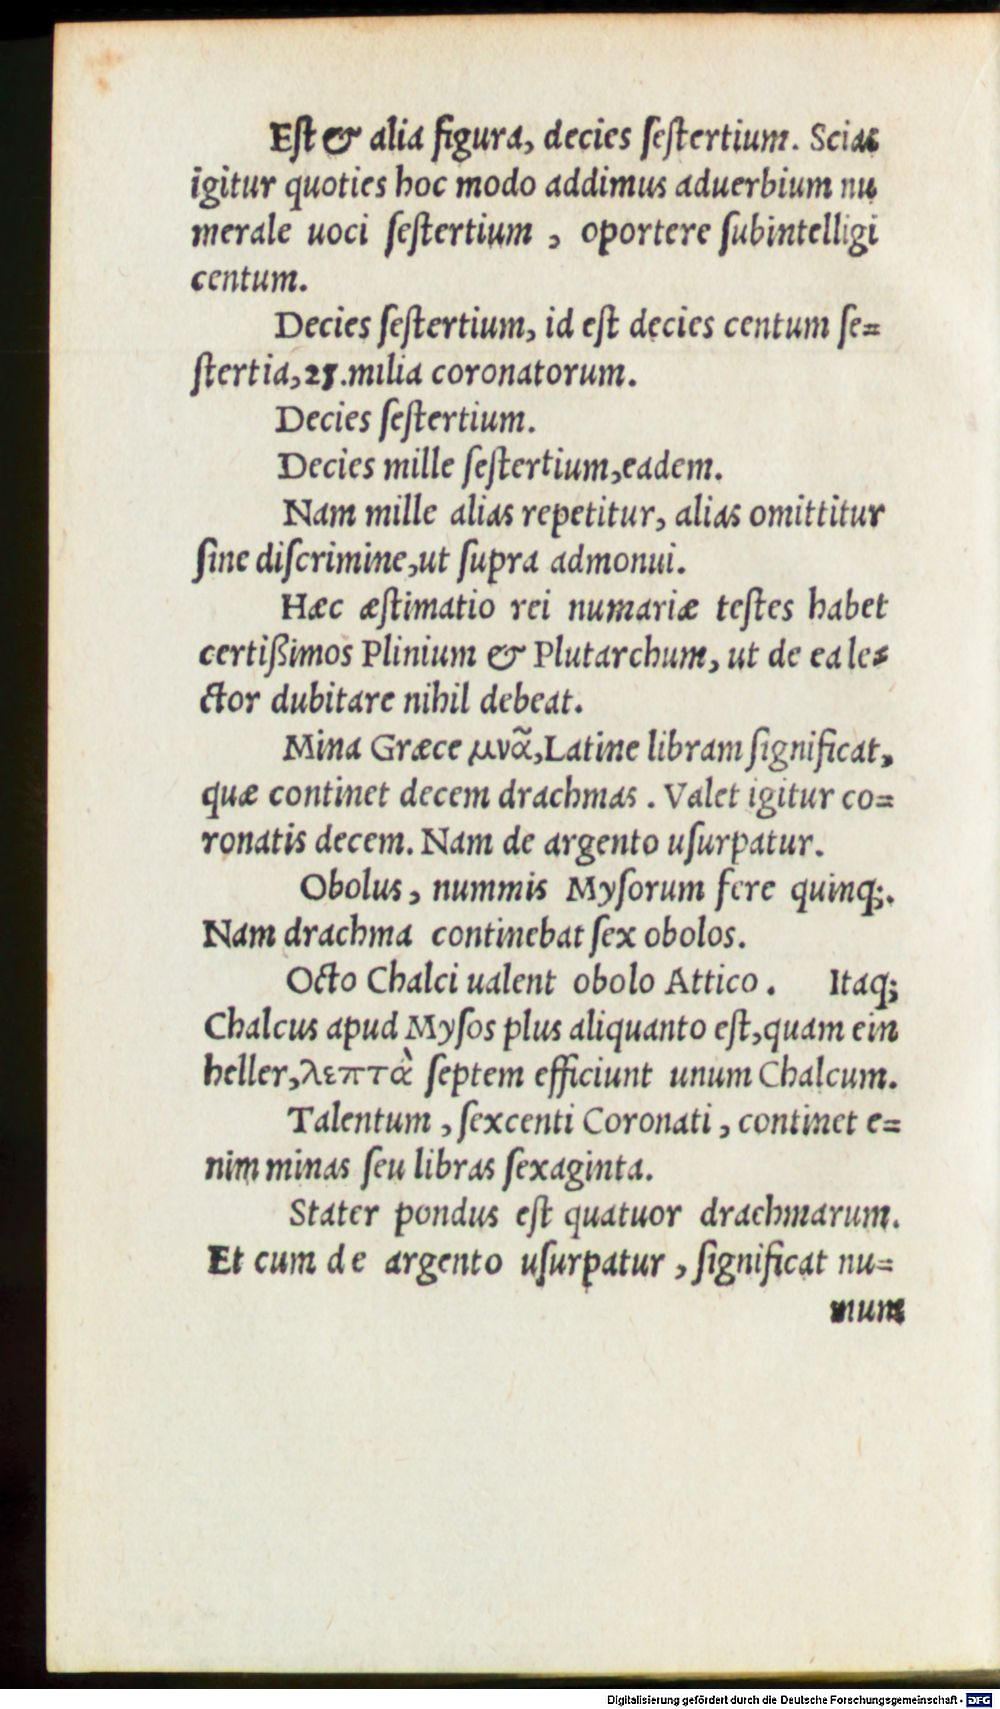 Eſt & alia figura, decies ſeſtertium. Scias
igitur quoties hoc modo addimus aduerbium nu
merale uoci ſeſtertium , oportere ſubintelligi
centum.
Decies ſeſtertium, id eſt decies centum ſe=
ſtertia,25.milia coronatorum.
Decies ſeſtertium.
Decies mille ſeſtertium,eadem.
Nam mille alias repetitur, alias omittitur
ſine diſcrimine,ut ſupra admonui.
Hæc æſtimatio rei numariæ teſtes habet
certißimos Plinium & Plutarchum, ut de ea le=
ctor dubitare nihil debeat.
Mina Græce μνᾶ,Latine libram ſignificat,
quæ continet decem drachmas . Valet igitur co=
ronatis decem. Nam de argento uſurpatur.
Obolus, nummis Myſorum fere quinq;.
Nam drachma continebat ſex obolos.
Octo Chalci ualent obolo Attico . Itaq;
Chalcus apud Myſos plus aliquanto eſt,quam ein
heller,λεπτὰ ſeptem efficiunt unum Chalcum.
Talentum , ſexcenti Coronati , continet e=
nim minas ſeu libras ſexaginta.
Stater pondus eſt quatuor drachmarum.
Et cum de argento uſurpatur , ſignificat nu=
mum
Digitalisierung gefördert durch die Deutsche Forschungsgemeinschaft - DFG